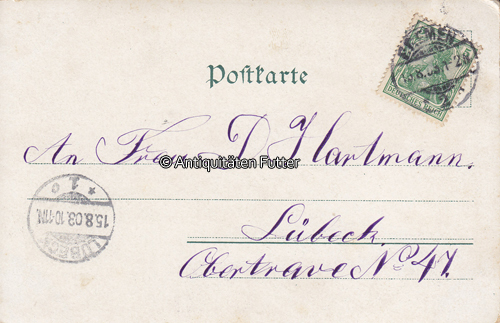 BREMEN
15.8.03.1-2N
DEUTSCHES REICH
5
Postkarte
An Frau D Hartmann.
© Antiquitäten Futter
* 1. o
15.8.03.10-11N.
LÜBECK
Lübeck.
Obertrave No 47.